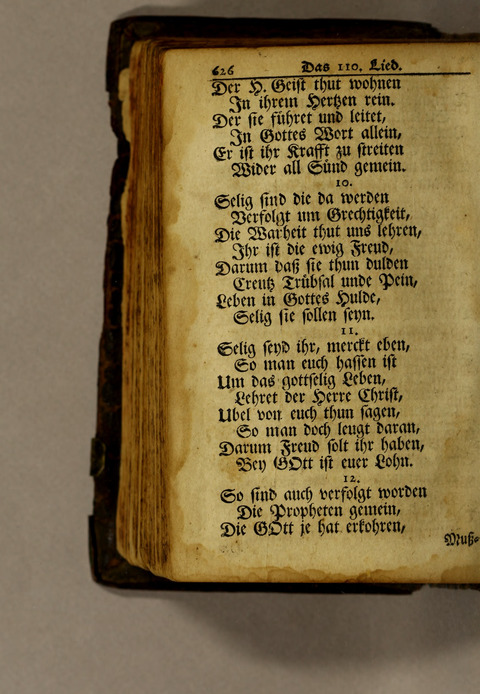 626 Das 110. Lied.
Der H. Geist thut wohnen
In ihrem Hertzen rein.
Der sie führet und leitet,
In Gottes Wort allein,
Er ist ihr Krafft zu streiten
Wider all Sünd gemein.
10.
Selig sind die da werden
Verfolgt um Grechtigkeit,
Die Warheit thut uns lehren,
Ihr ist die ewig Freud,
Darum daß sie thun dulden
Creutz Trübsal unde Pein,
Leben in Gottes Hulde,
Selig sie sollen seyn.
11.
Selig seyd ihr, merckt eben,
So man euch hassen ist
Um das gottselig Leben,
Lehret der Herre Christ,
Ubel von euch thun sagen,
So man doch leugt daran,
Darum Freud solt ihr haben,
Bey GOtt ist euer Lohn.
12.
So sind auch verfolgt worden
Die Propheten gemein,
Die GOtt je hat erkohren,
Muß-